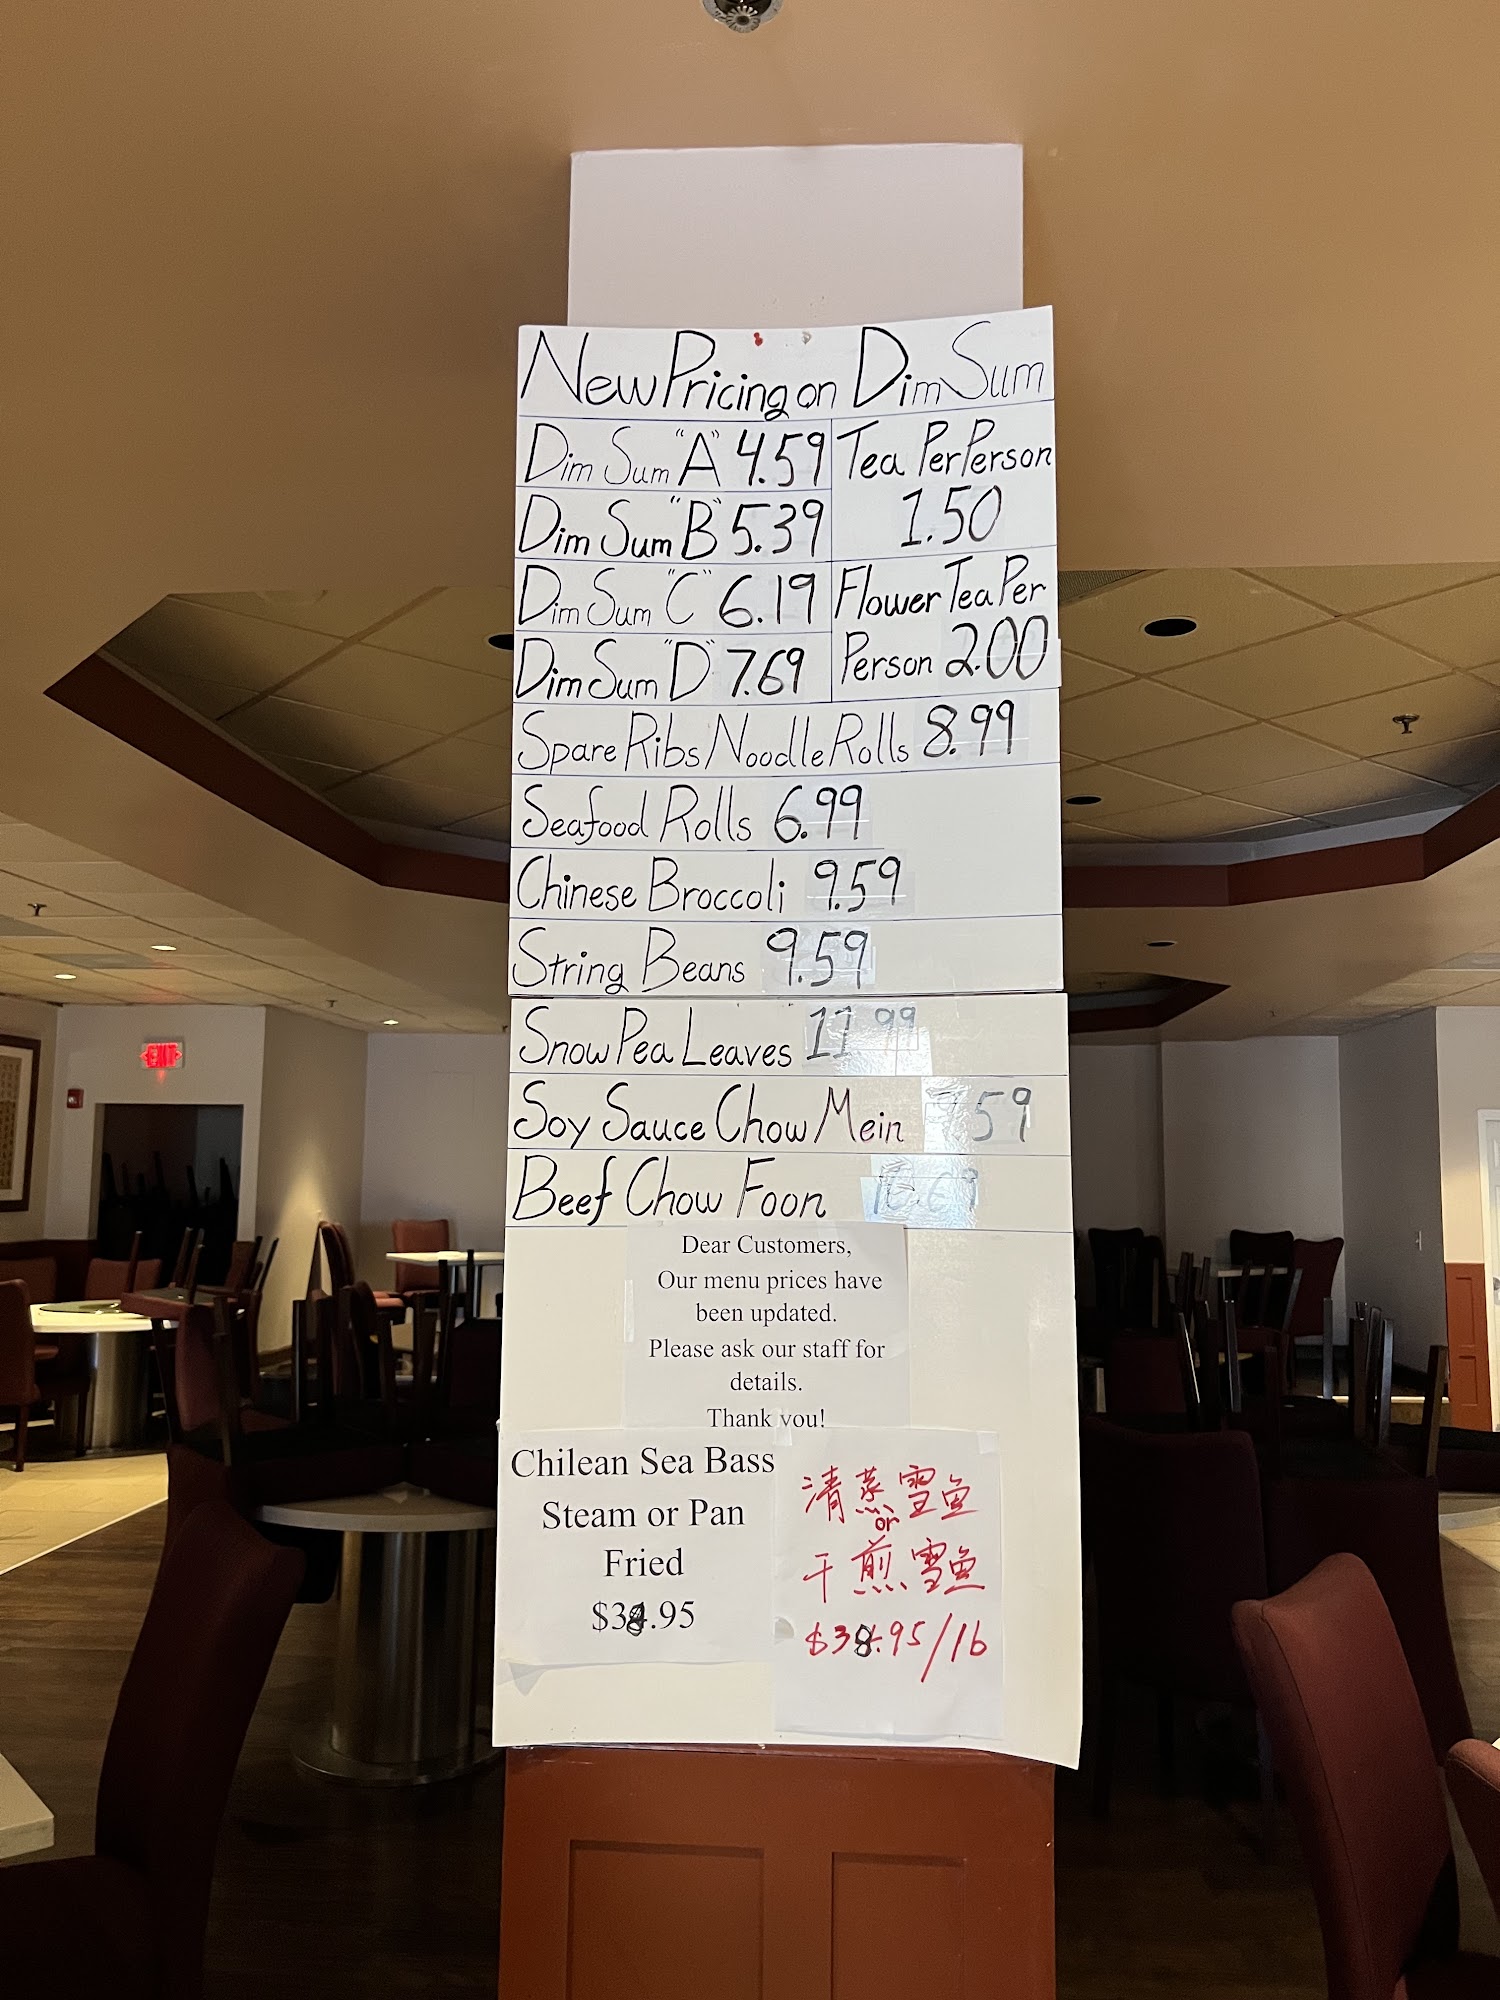 New Pricing on Dim Sum
Dim Sum "A" 4.59
Dim Sum "B" 5.39
Dim Sum "C" 6.19
Dim Sum "D" 7.69
Tea Per Person
1.50
Flower Tea Per
Person 2.00
Spare Ribs/Noodle Rolls 8.99
Seafood Rolls 6.99
Chinese Broccoli 9.59
String Beans 9.59
Snow Pea Leaves 11 99
Soy Sauce Chow Mein
Beef Chow Foon
Dear Customers,
Our menu prices have
been updated.
Please ask our staff for
details.
Thank you!
Chilean Sea Bass
Steam or Pan
Fried
$38.95
清蒸雪魚
or
干煎雪魚
$38.95/lb
EXIT